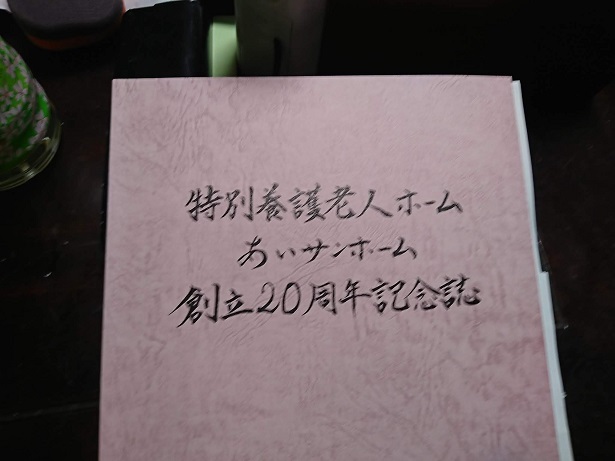 特別養護老人ホーム
あいサンホーム
創立20周年記念誌